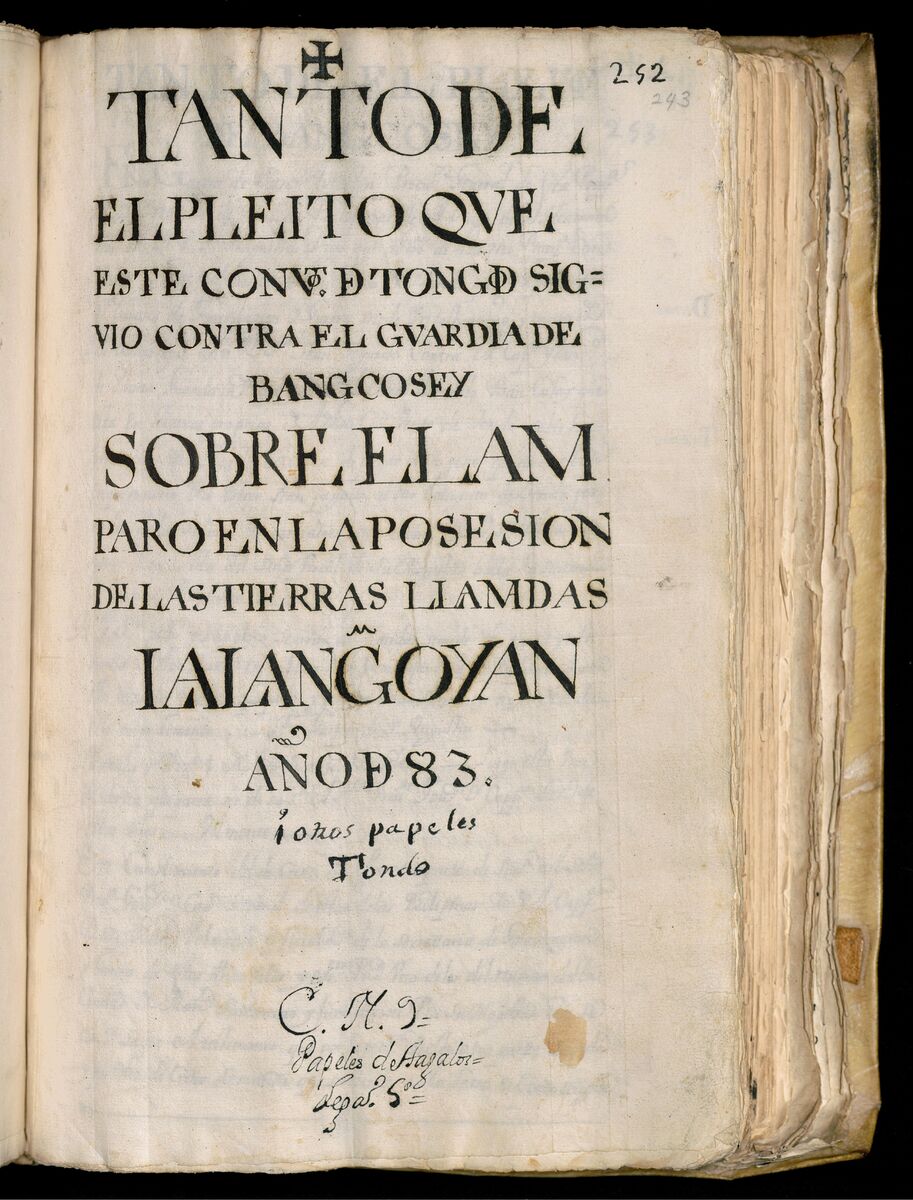 ✠
252
243
TANTO DE
EL PLEITO QVE
ESTE CONVto. DE TONGDO SIG=
VIO CONTRA EL GVARDIA DE
BANGCOSEY
SOBRE EL AM
PARO EN LA POSESION
DE LAS TIERRAS LLAMDAS
IALANG̃OYAN
AÑO DE 83.
i otros papeles
Tondo
C. M. 9=
Papeles de Tagalos=
Legao. 5o=